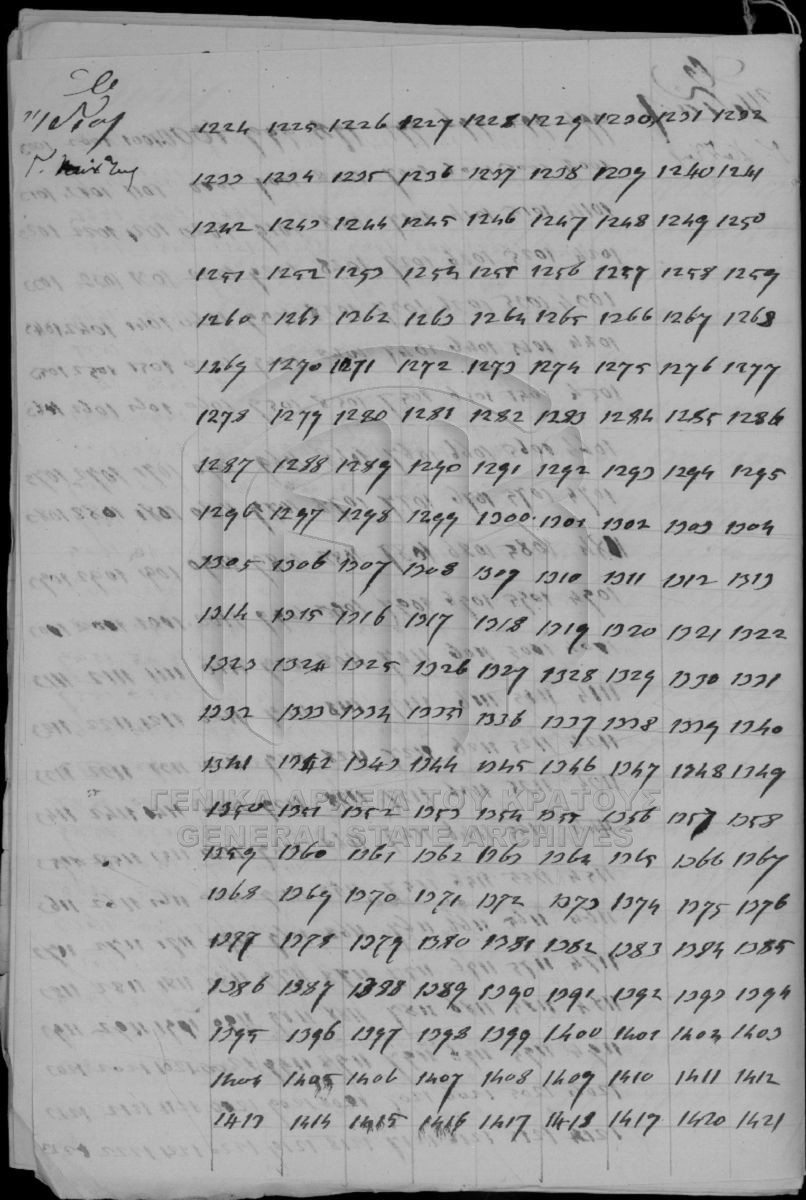 1224 1225 1226 1227 1228 1229 1230 1231 1232
1233 1234 1235 1236 1237 1238 1239 1240 1241
1242 1243 1244 1245 1246 1247 1248 1249 1250
1251 1252 1253 1254 1255 1256 1257 1258 1259
1260 1261 1262 1263 1264 1265 1266 1267 1268
1269 1270 1271 1272 1273 1274 1275 1276 1277
1278 1279 1280 1281 1282 1283 1284 1285 1286
1287 1288 1289 1290 1291 1292 1293 1294 1295
1296 1297 1298 1299 1300 1301 1302 1303 1304
1305 1306 1307 1308 1309 1310 1311 1312 1313
1314 1315 1316 1317 1318 1319 1320 1321 1322
1323 1324 1325 1326 1327 1328 1329 1330 1331
1332 1333 1334 1335 1336 1337 1338 1339 1340
1341 1342 1343 1344 1345 1346 1347 1348 1349
ΓΕΝΙΚΑ ΑΡΧΕΙΑ ΤΟΥ ΚΡΑΤΟΥΣ
1350 1351 1352 1353 1354 1355 1356 1357 1358
GENERAL STATE ARCHIVES
1359 1360 1361 1362 1363 1364 1365 1366 1367
1368 1369 1370 1371 1372 1373 1374 1375 1376
1377 1378 1379 1380 1381 1382 1383 1384 1385
1386 1387 1388 1389 1390 1391 1392 1393 1394
1395 1396 1397 1398 1399 1400 1401 1402 1403
1404 1405 1406 1407 1408 1409 1410 1411 1412
1413 1414 1415 1416 1417 1418 1419 1420 1421